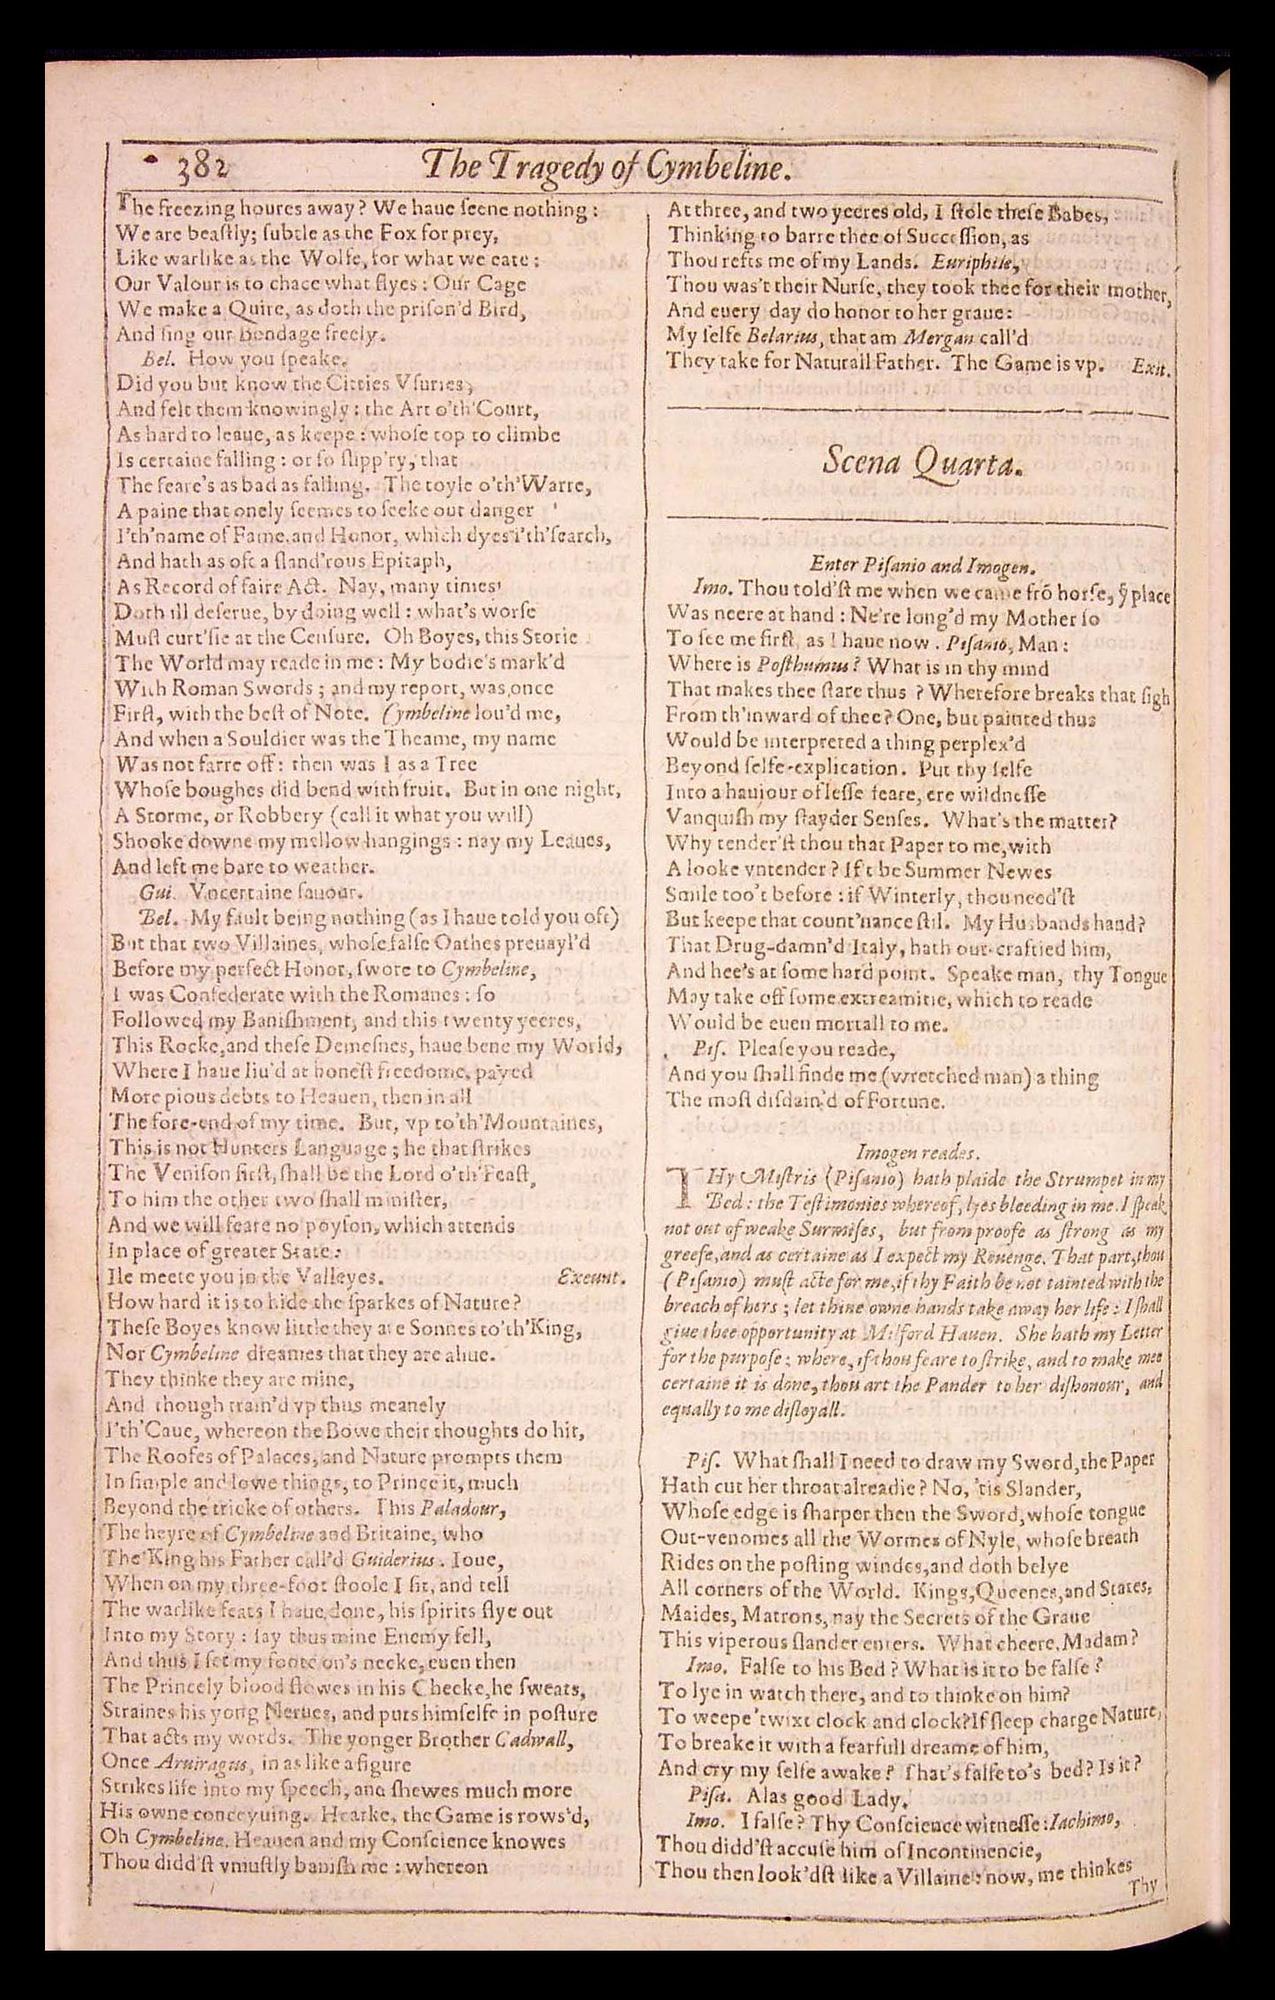 382
The Tragedy of Cymbeline.
The freezing houres away? We haue ſeene nothing:
We are beaſtly; ſubtle as the Fox for prey,
Like warlike as the Wolfe, for what we eate:
Our Valour is to chace what flyes: Our Cage
We make a Quire, as doth the priſon'd Bird,
And ſing our Bondage freely.
Bel. How you ſpeake.
Did you but know the Citties Vſuries,
And felt them knowingly: the Art o'th'Court,
As hard to leaue, as keepe: whoſe top to climbe
Is certaine falling: or ſo ſlipp'ry, that
The feare's as bad as falling. The toyle o'th'Warre,
A paine that onely ſeemes to ſeeke out danger
I'th'name of Fame, and Honor, which dyes i'th'ſearch,
And hath as oft a ſland'rous Epitaph,
As Record of faire Act. Nay, many times
Doth ill deſerue, by doing well: what's worſe
Muſt curt'ſie at the Cenſure. Oh Boyes, this Storie
The World may reade in me: My bodie's mark'd
With Roman Swords; and my report, was once
Firſt, with the beſt of Note. Cymbeline lou'd me,
And when a Souldier was the Theame, my name
Was not farre off: then was I as a Tree
Whoſe boughes did bend with fruit. But in one night,
A Storme, or Robbery (call it what you will)
Shooke downe my mellow hangings: nay my Leaues,
And left me bare to weather.
Gui. Vncertaine fauour.
Bel. My fault being nothing (as I haue told you oft)
But that two Villaines, whoſe falſe Oathes preuayl'd
Before my perfect Honor, ſwore to Cymbeline,
I was Confederate with the Romanes: ſo
Followed my Baniſhment, and this twenty yeeres,
This Rocke, and theſe Demeſnes, haue bene my World,
Where I haue liu'd at honeſt freedome, payed
More pious debts to Heauen, then in all
The fore-end of my time. But, vp to'th'Mountaines,
This is not Hunters Language; he that ſtrikes
The Veniſon firſt, ſhall be the Lord o'th'Feaſt,
To him the other two ſhall miniſter,
And we will feare no poyſon, which attends
In place of greater State:
Ile meete you in the Valleyes. Exeunt.
How hard it is to hide the ſparkes of Nature?
Theſe Boyes know little they are Sonnes to'th'King,
Nor Cymbeline dreames that they are aliue.
They thinke they are mine,
And though train'd vp thus meanely
I'th'Caue, whereon the Bowe their thoughts do hit,
The Roofes of Palaces, and Nature prompts them
In ſimple and lowe things, to Prince it, much
Beyond the tricke of others. This Paladour,
The heyre of Cymbeline and Britaine, who
The King his Father call'd Guiderius. Ioue,
When on my three-foot ſtoole I ſit, and tell
The warlike feats I haue done, his ſpirits flye out
Into my Story: ſay thus mine Enemy fell,
And thus I ſet my foote on's necke, euen then
The Princely blood flowes in his Cheeke, he ſweats,
Straines his yong Nerues, and puts himſelfe in poſture
That acts my words. The yonger Brother Cadwall,
Once Aruiragus, in as like a figure
Strikes life into my ſpeech, and ſhewes much more
His owne conceyuing. Hearke, the Game is rows'd,
Oh Cymbeline, Heauen and my Conſcience knowes
Thou didd'ſt vniuſtly baniſh me: whereon
At three, and two yeeres old, I ſtole theſe Babes,
Thinking to barre thee of Succeſſion, as
Thou refts me of my Lands. Euriphile,
Thou was't their Nurſe, they took thee for their mother,
And euery day do honor to her graue:
My ſelfe Belarius, that am Mergan call'd
They take for Naturall Father. The Game is vp. Exit.
Scena Quarta.
Enter Piſanio and Imogen.
Imo. Thou told'ſt me when we came frō horſe, ỹ place
Was neere at hand: Ne're long'd my Mother ſo
To ſee me firſt, as I haue now. Piſanio, Man:
Where is Poſthumus? What is in thy mind
That makes thee ſtare thus? Wherefore breaks that ſigh
From th'inward of thee? One, but painted thus
Would be interpreted a thing perplex'd
Beyond ſelfe-explication. Put thy ſelfe
Into a hauiour of leſſe feare, ere wildneſſe
Vanquiſh my ſtayder Senſes. What's the matter?
Why tender'ſt thou that Paper to me, with
A looke vntender? If't be Summer Newes
Smile too't before: if Winterly, thou need'ſt
But keepe that count'nance ſtil. My Husbands hand?
That Drug-damn'd Italy, hath out-craftied him,
And hee's at ſome hard point. Speake man, thy Tongue
May take off ſome extreamitie, which to reade
Would be euen mortall to me.
Piſ. Pleaſe you reade,
And you ſhall finde me (wretched man) a thing
The moſt diſdain'd of Fortune.
Imogen reades.
THy Miſtris (Piſanio) hath plaide the Strumpet in my
Bed: the Teſtimonies whereof, lyes bleeding in me. I ſpeak
not out of weake Surmiſes, but from proofe as ſtrong as my
greefe, and as certaine as I expect my Reuenge. That part, thou
(Piſanio) muſt acte for me, if thy Faith be not tainted with the
breach of hers; let thine owne hands take away her life: I ſhall
giue thee opportunity at Milford Hauen. She hath my Letter
for the purpoſe; where, if thou feare to ſtrike, and to make mee
certaine it is done, thou art the Pander to her diſhonour, and
equally to me diſloyall.
Piſ. What ſhall I need to draw my Sword, the Paper
Hath cut her throat alreadie? No, 'tis Slander,
Whoſe edge is ſharper then the Sword, whoſe tongue
Out-venomes all the Wormes of Nyle, whoſe breath
Rides on the poſting windes, and doth belye
All corners of the World. Kings, Queenes, and States,
Maides, Matrons, nay the Secrets of the Graue
This viperous ſlander enters. What cheere, Madam?
Imo. Falſe to his Bed? What is it to be falſe?
To lye in watch there, and to thinke on him?
To weepe 'twixt clock and clock? If ſleep charge Nature,
To breake it with a fearfull dreame of him,
And cry my ſelfe awake? That's falſe to's bed? Is it?
Piſa. Alas good Lady.
Imo. I falſe? Thy Conſcience witneſſe: Iachimo,
Thou didd'ſt accuſe him of Incontinencie,
Thou then look'dſt like a Villaine: now, me thinkes
Thy